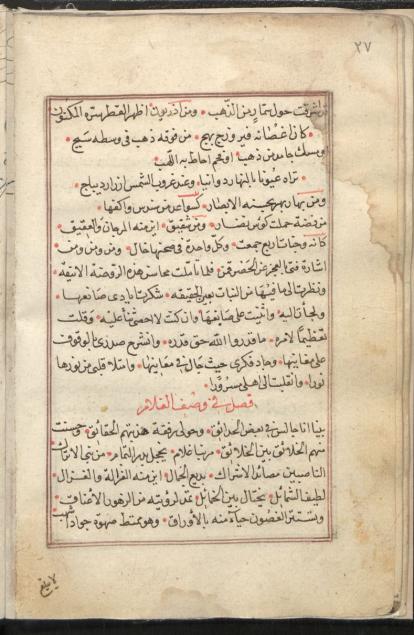 ٢٧
اشرقت حول سما من الذهب • ومن آذريون اظهر القطر سره المكنون
كان اغصانه فيروزج بهج • من فوقه ذهب في وسطه سبج
ومسك جامد من ذهب • او فحم احاط به اللهب
تراه عيونا بالنهار روانيا • وعند غروب الشمس ازرار ديباج
ومن بهار بهجته الابصار • كسواعد من سندس واكفها
من فضة حملت كؤس نضار • ومن شقيق • اين منه المرجان والعقيق
كانه وجنات اربع جمعت • وكل واحدة في صحنها خال • ومن ومن ومن
اشارة فتى العجز عن الحصر فمن • فلما تأملت محاسن هذه الروضة الانيقه
ونظرت الى ما فيها من النبات بعين الحقيقه • شكرت ايادى صانعها
ولجأت اليه • واثنيت على صانعها وان كنت لا احصى ثناء عليه • وقلت
تعظيما لامره • ما قدروا الله حق قدره • وانشرح صدري بالوقوف
على معاينها • وحار فكرى حيث جال في معانيها • وامتلأ قلبي من نورها
نورا • وانقلبت الى اهلى مسرورا
فصل في وصف الغلام
بينا انا جالس في بعض الحدائق • وحولي رفقة هذبتهم الحقائق • وحسنت
منهم الخلائق بين الخلائق • مر بنا غلام • يخجل بدر التمام • من بنى الاتراك
الناصبين مصائد الاشراك • بديع الجمال • اين منه الغزالة والغزال
لطيف الشمائل • يختال بين الخمائل • تمد لرؤيته من الزهور الاعناق
وتستتر الغصون حياء منه بالاوراق • وهو ممتط صهوة جواد اشهب